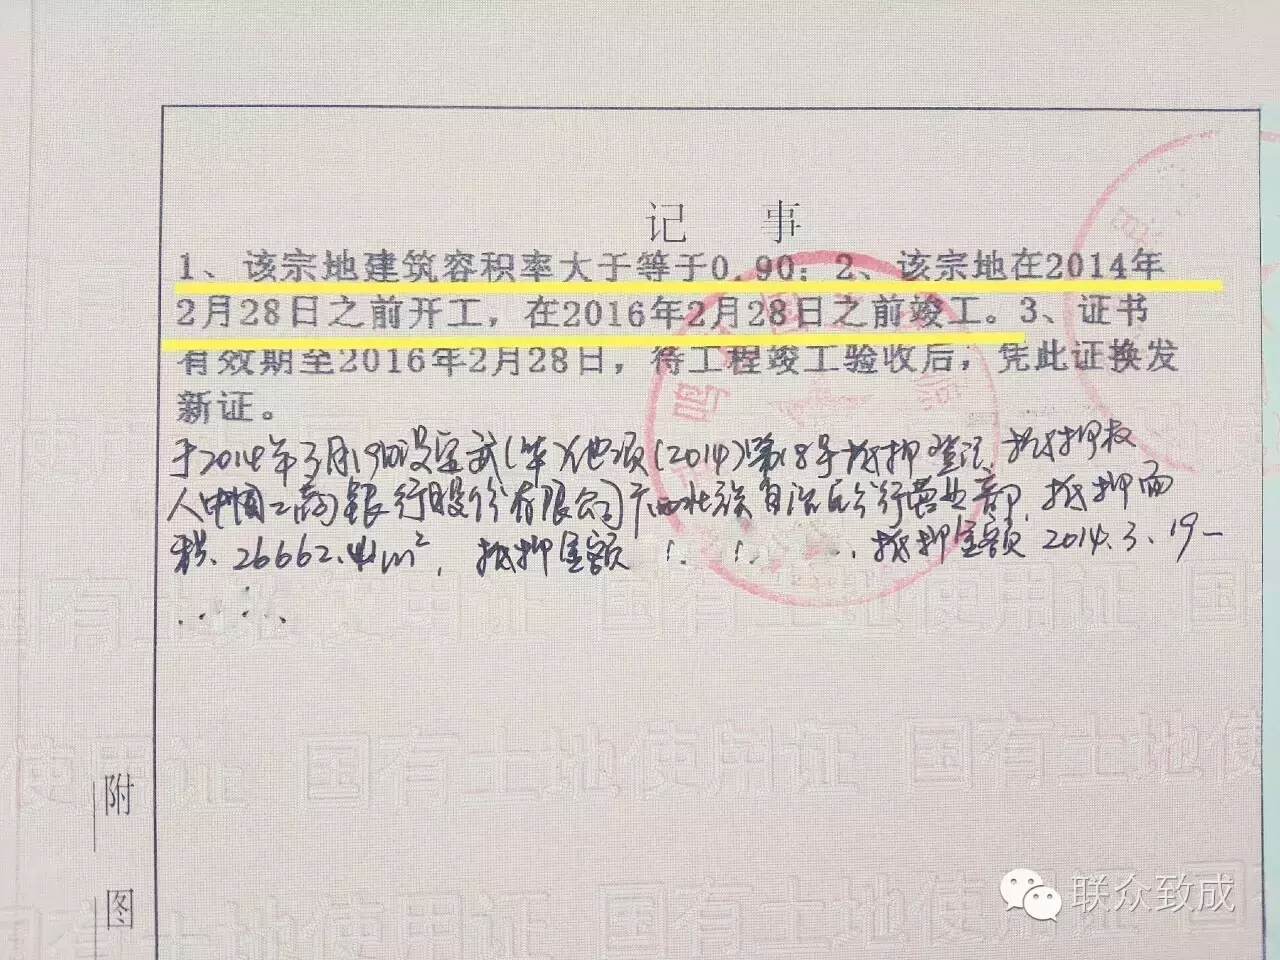 记 事
1、该宗地建筑容积率大于等于0.90；2、该宗地在2014年
2月28日之前开工，在2016年2月28日之前竣工。3、证书
有效期至2016年2月28日，待工程竣工验收后，凭此证换发
新证。
于2014年3月19日设定武(华)他项(2014)第18号抵押登记,抵押权
人中国工商银行股份有限公司广西壮族自治区分行营业部,抵押面
积、26662.4m²,抵押金额 抵押金额 2014.3.19-
国有土地使用证 国有土地使用证
使用证 国有土地使用证 国有土地使
附
图
国有土地使用证
联众致成